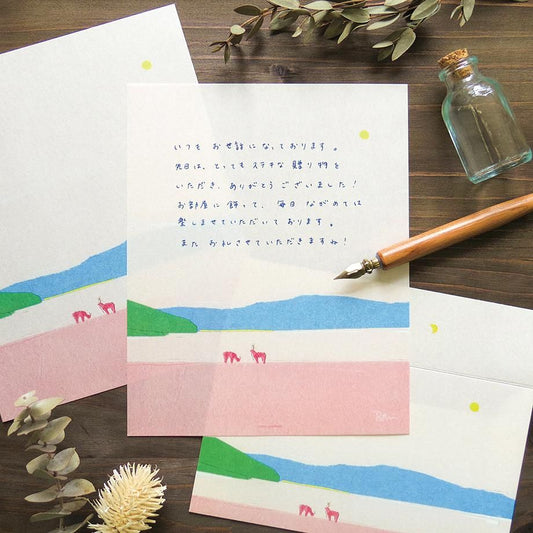 いつも お世話になっております。
先日は、とっても ステキな 贈り物を
いただき、ありがとう ございました！
お部屋に 飾って、毎日 ながめては
楽しませていただいて おります。
また お礼させていただきますね！